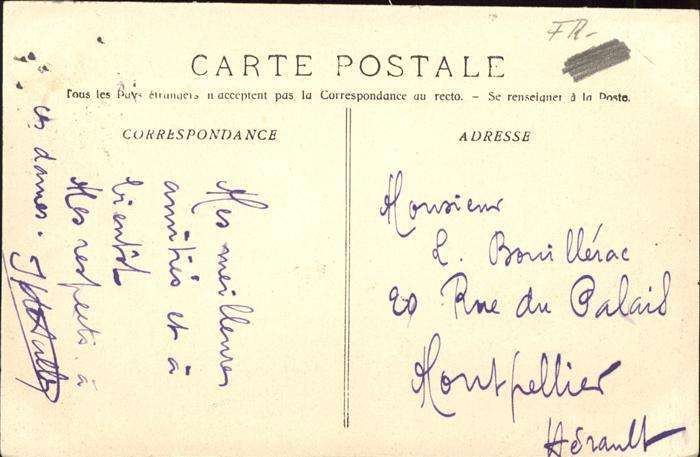 FR-
CARTE POSTALE
Tous les Pays étrangers n'acceptent pas la Correspondance au recto. - Se renseigner à la Poste.
CORRESPONDANCE
Mes meilleures
amitiés et à
bientôt
Mes respects à
ces dames.
ADRESSE
Monsieur
L. Bouillérac
20 Rue du Palais
Montpellier
Hérault